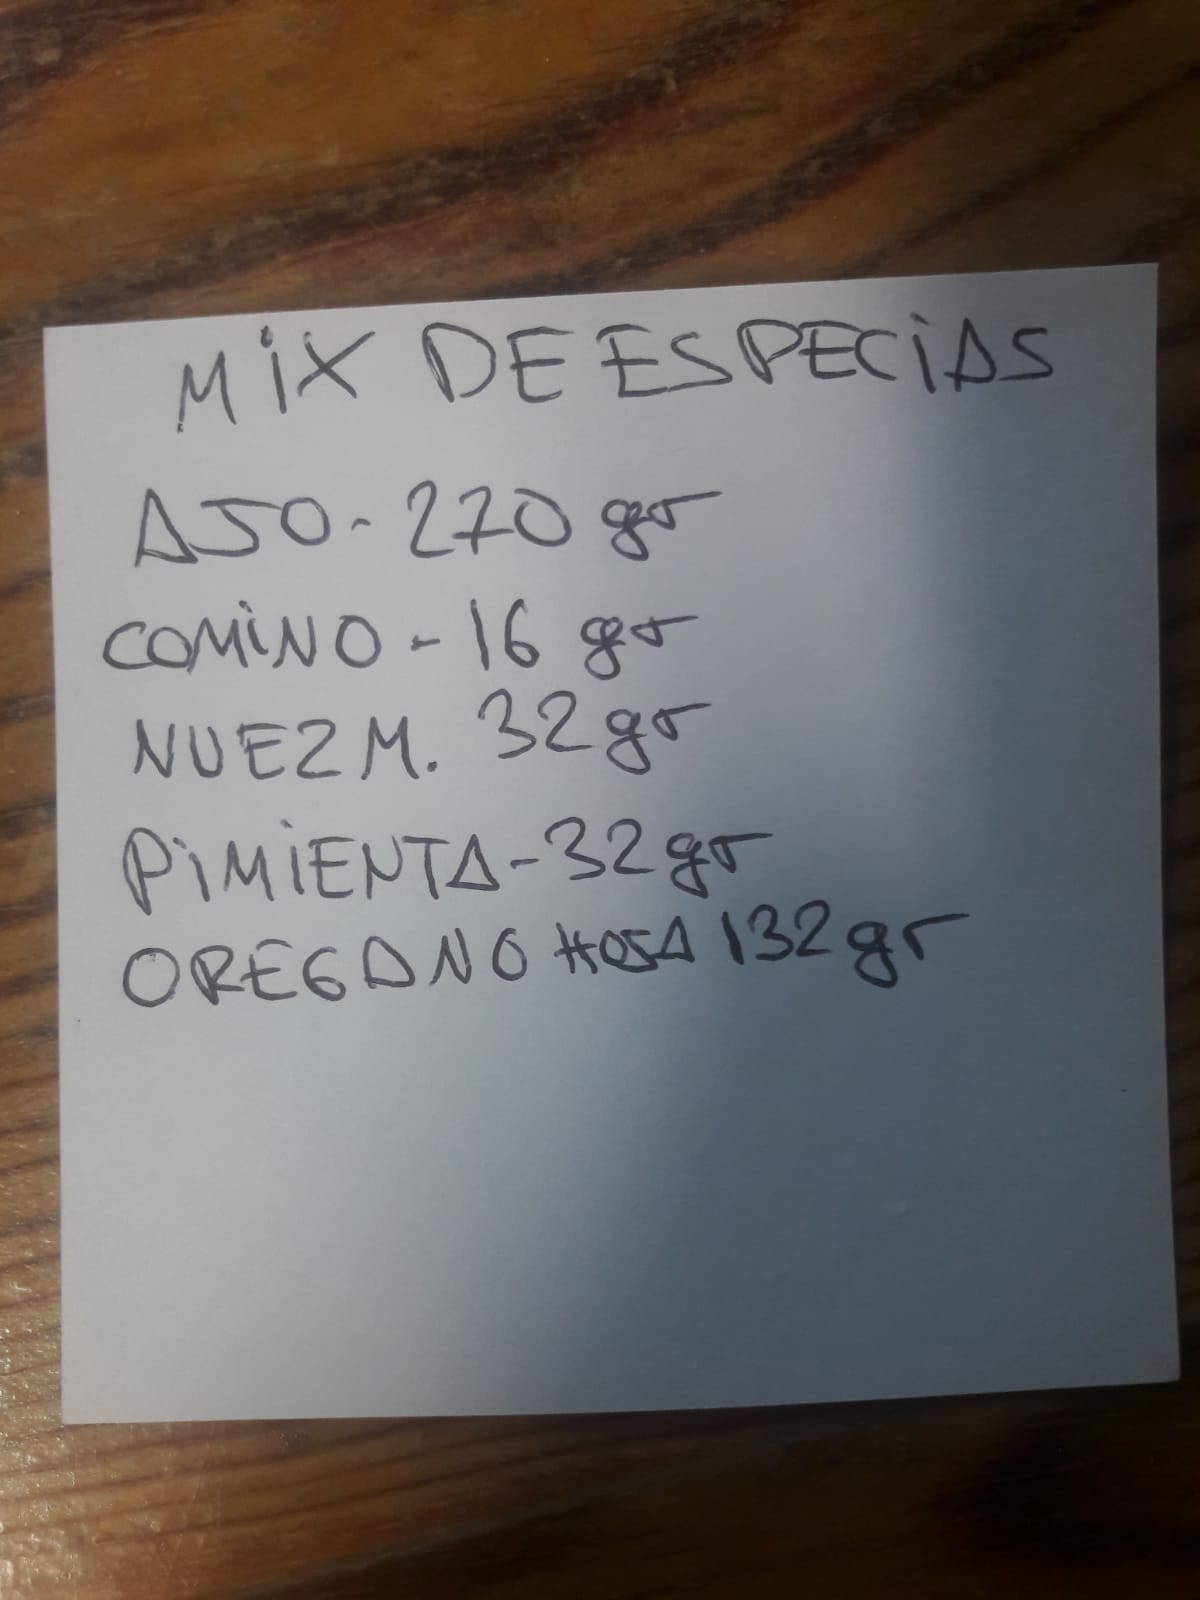 MIX DE ESPECIAS
AJO - 270 gr
COMINO - 16 gr
NUEZ M. 32 gr
PIMIENTA - 32 gr
OREGANO HOJA 132 gr